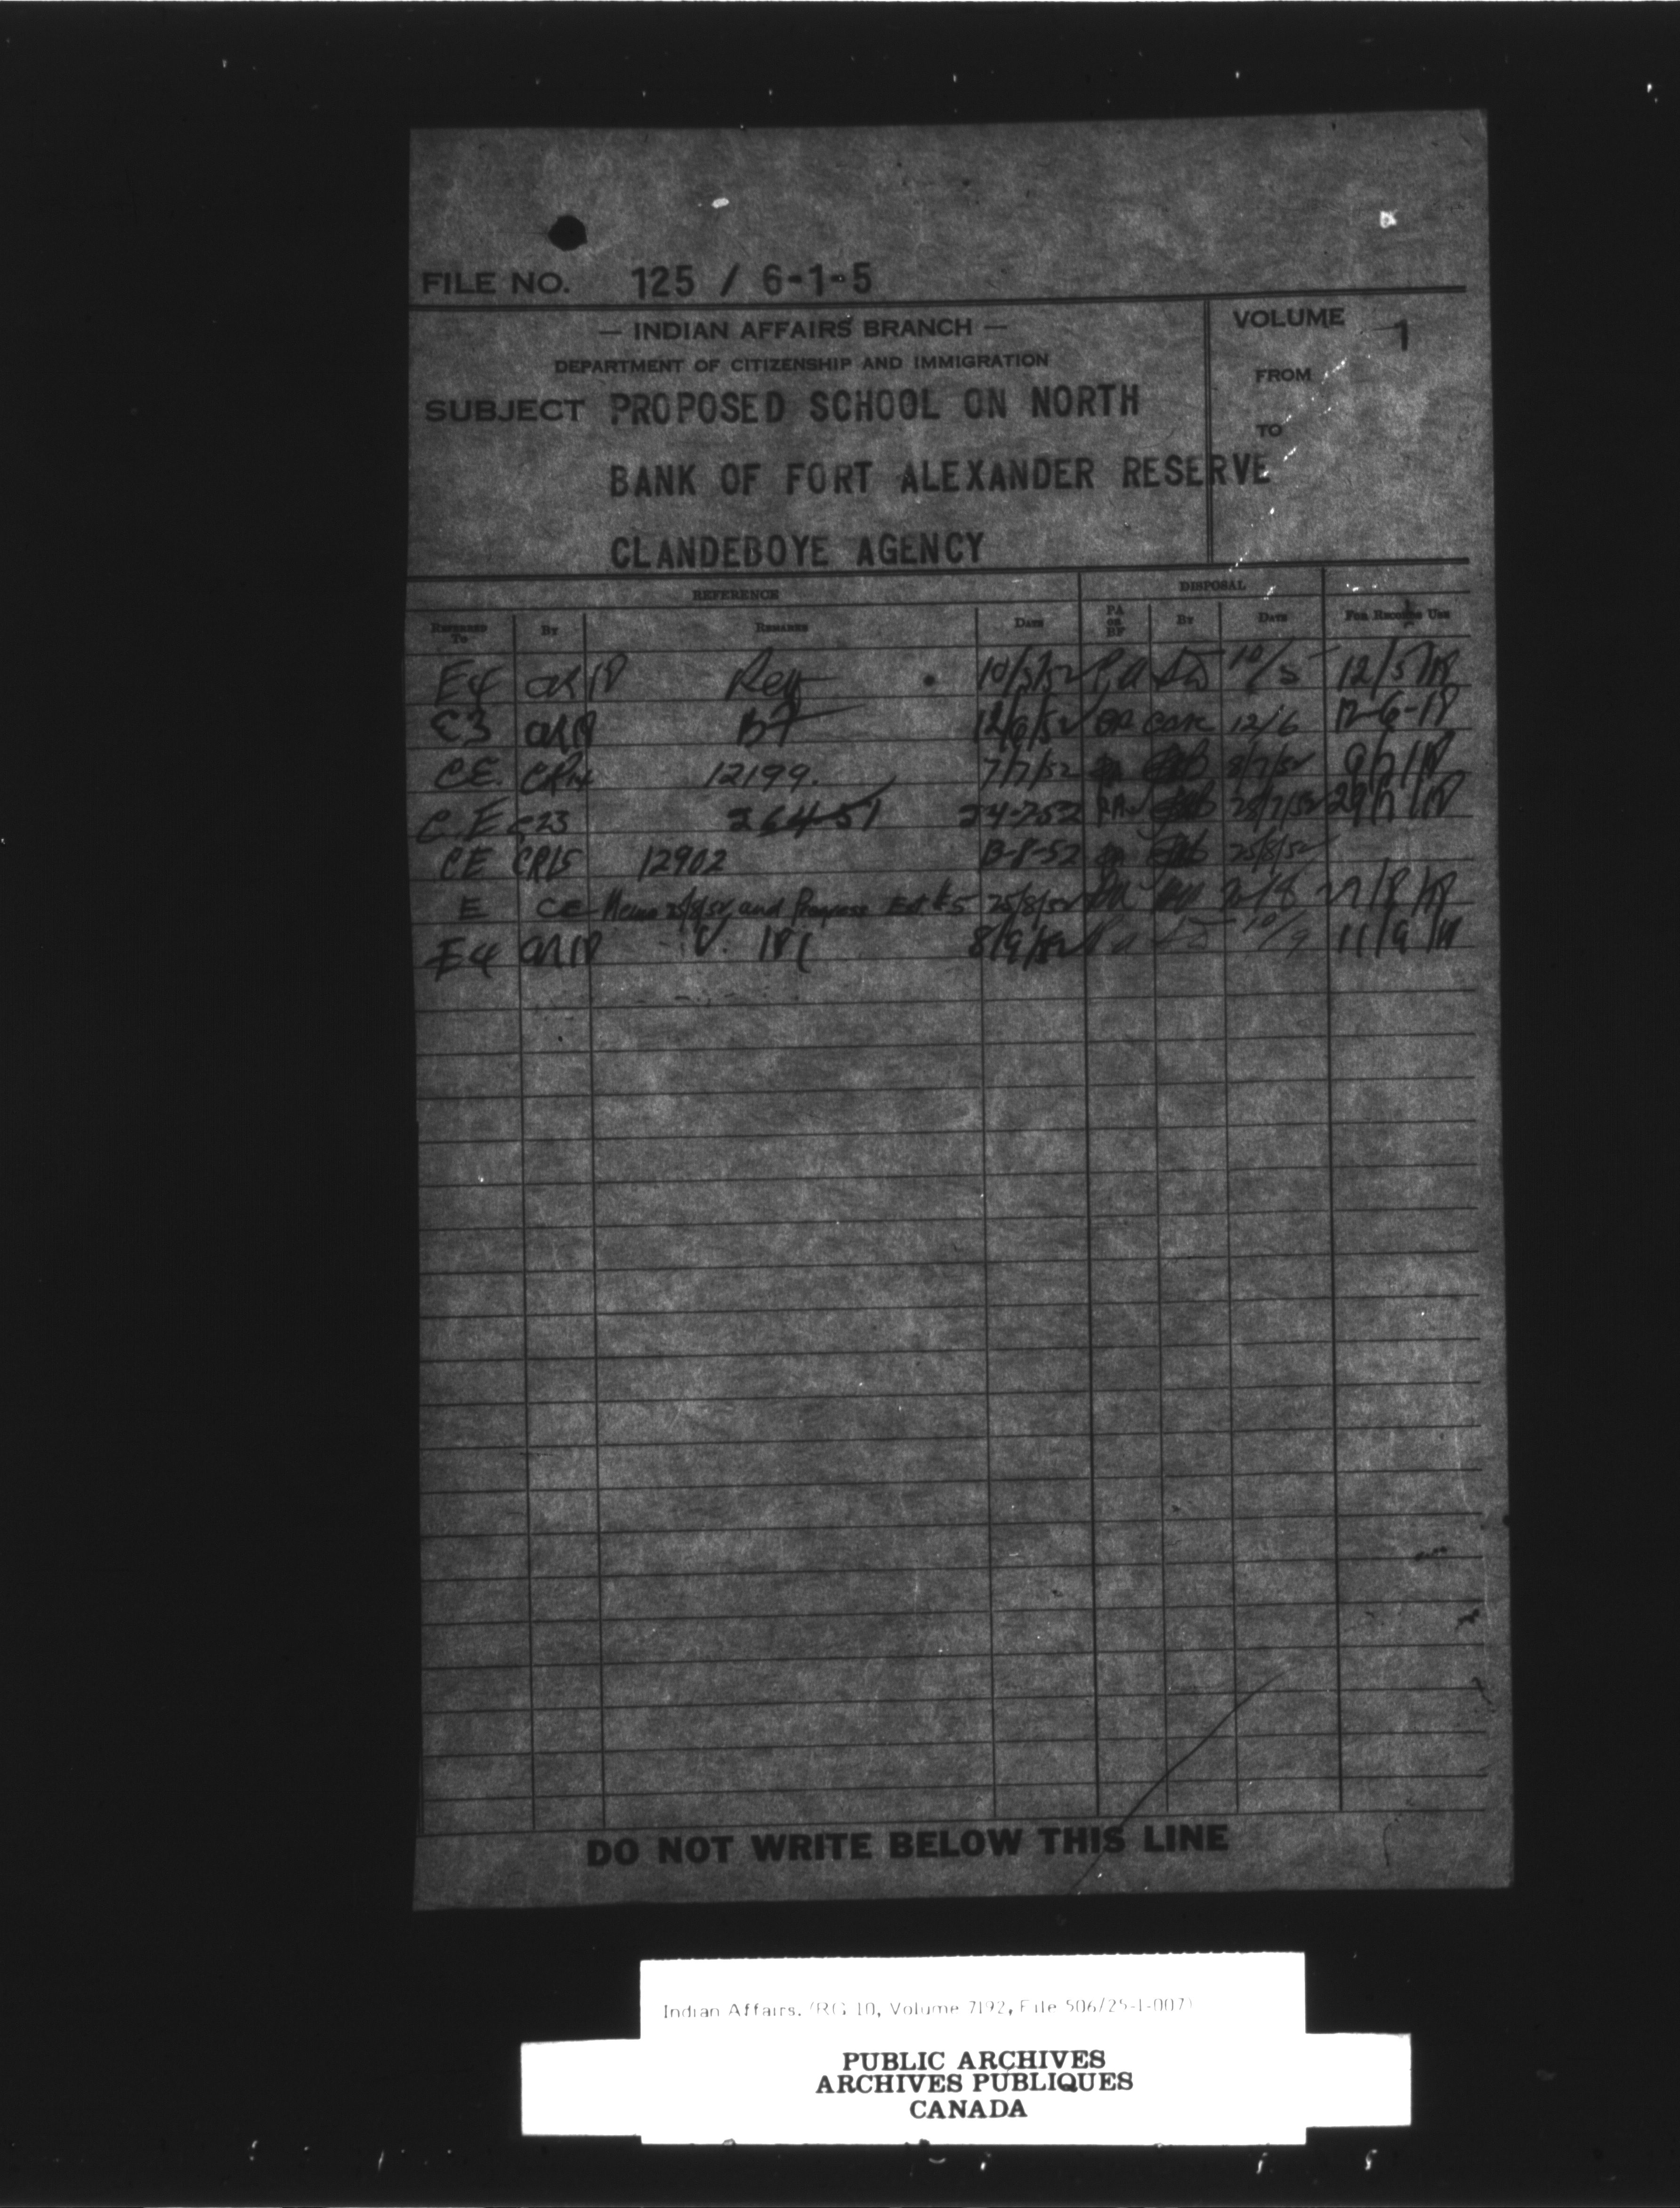 FILE NO. 125 / 6-1-5
— INDIAN AFFAIRS BRANCH —
DEPARTMENT OF CITIZENSHIP AND IMMIGRATION
VOLUME 1
FROM
TO
SUBJECT PROPOSED SCHOOL ON NORTH
BANK OF FORT ALEXANDER RESERVE
CLANDEBOYE AGENCY
REFERENCE DISPOSAL
REFERRED TO BY REMARKS DATE PA OR BF BY DATE FOR RECORDS USE
E4 10/5/52 PA 10/5 12/5
C3 BF 12/6/52 12/6 12-6-
CE. 12199. 7/7/52 8/7/52 9/7
C.E 264-51 24-7-52 PA 28/7/52 29/7
CE CR15 12902 13-8-52 25/8/52
E CE Memo 25/8/52 and Progress Est #5 25/8/52 PA
E4 8/9/52 10/9 11/9
DO NOT WRITE BELOW THIS LINE
Indian Affairs. (RG 10, Volume 7192, File 506/25-1-007)
PUBLIC ARCHIVES
ARCHIVES PUBLIQUES
CANADA